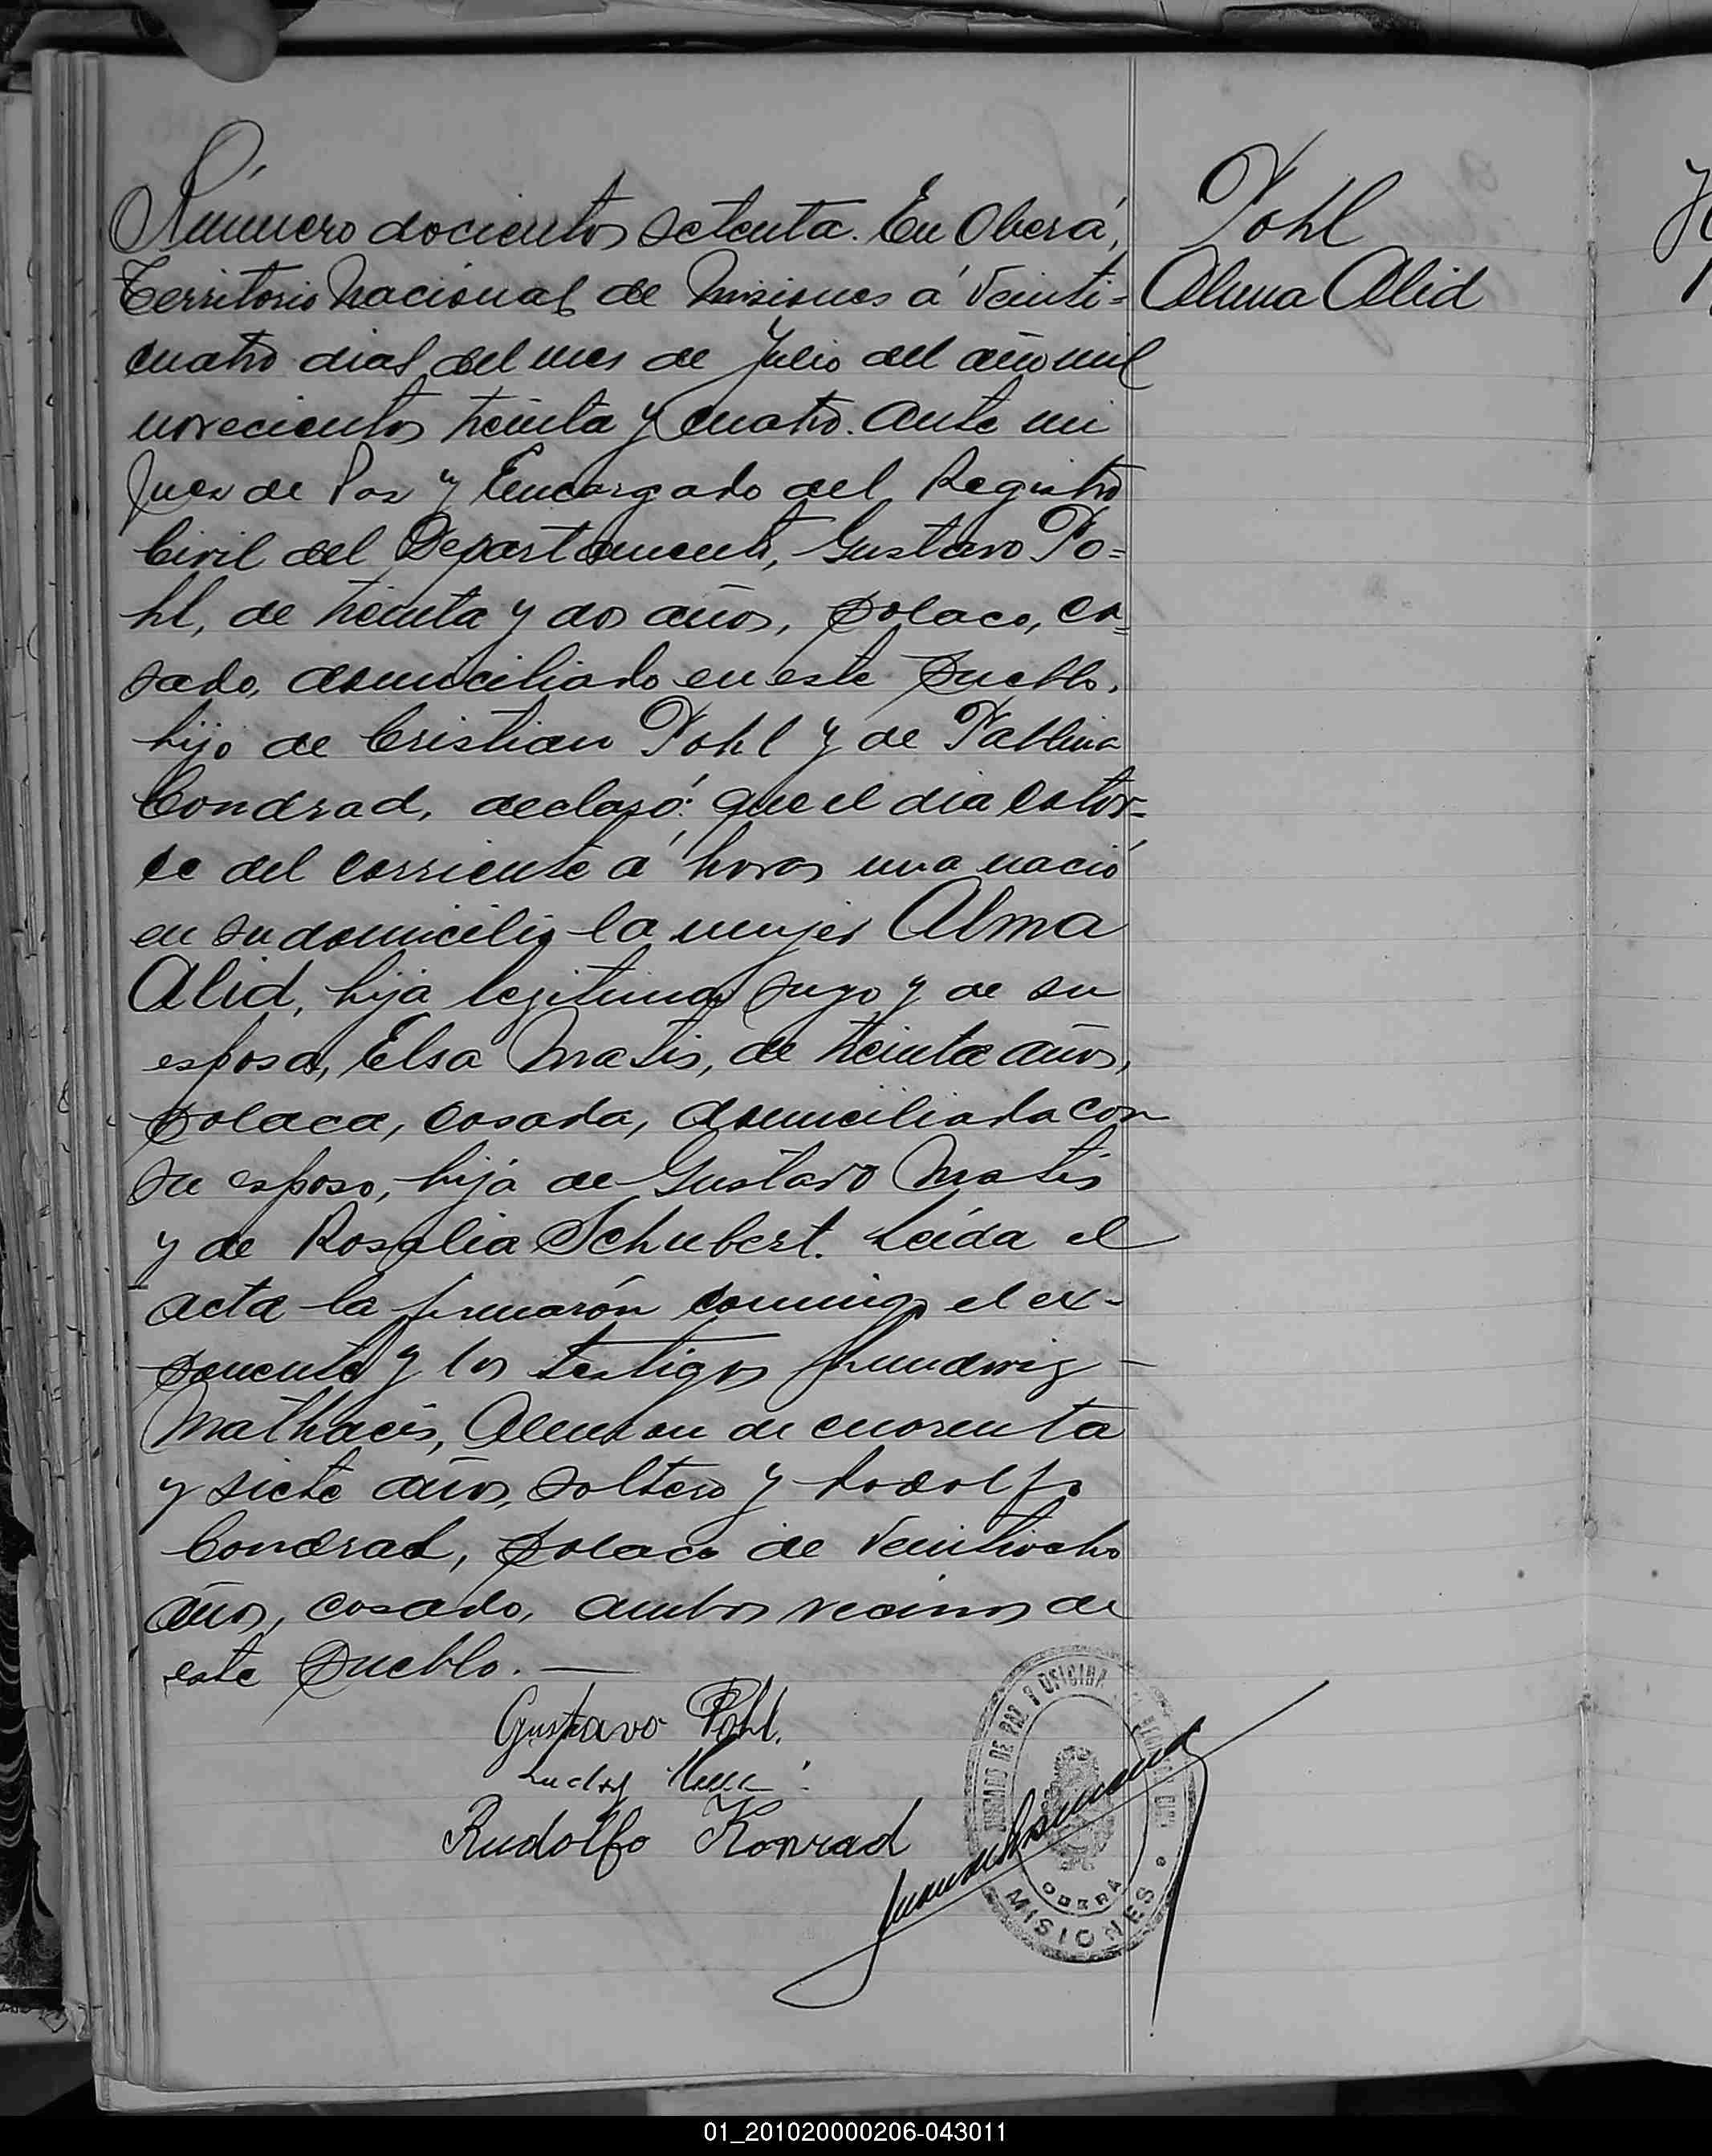 Número docientos setenta. En Oberá,
Territorio Nacional de Misiones á veinti=
cuatro dias del mes de Julio del año mil
novecientos treinta y cuatro. Ante mi
Juez de Paz y Encargado del Registro
Civil del Departamento, Gustavo Po=
hl, de treinta y dos años, polaco, ca=
sado, domiciliado en este pueblo,
hijo de Cristian Pohl y de Pablina
Condrad, declaró: que el dia cator=
ce del corriente á horas una nació
en su domicilio la mujer Alma
Alid, hija legitima suya y de su
esposa, Elsa Matis, de treinta años,
polaca, casada, domiciliada con
su esposo, hija de Gustavo Matis
y de Rosalia Schubert. Leida el
acta la firmarón conmigo el ex-
ponente y los testigos Lundwig -
Mathaeis, Aleman de cuarenta
y siete años, soltero y Rodolfo
Condrad, polaco de veintiocho
años, casado, ambos vecinos de
este pueblo. —
Gustavo Pohl.
Rudolfo Konrad
JUZGADO DE PAZ Y OFICINA DEL REGISTRO CIVIL
OBERA
MISIONES
Pohl
Alma Alid
01_201020000206-043011